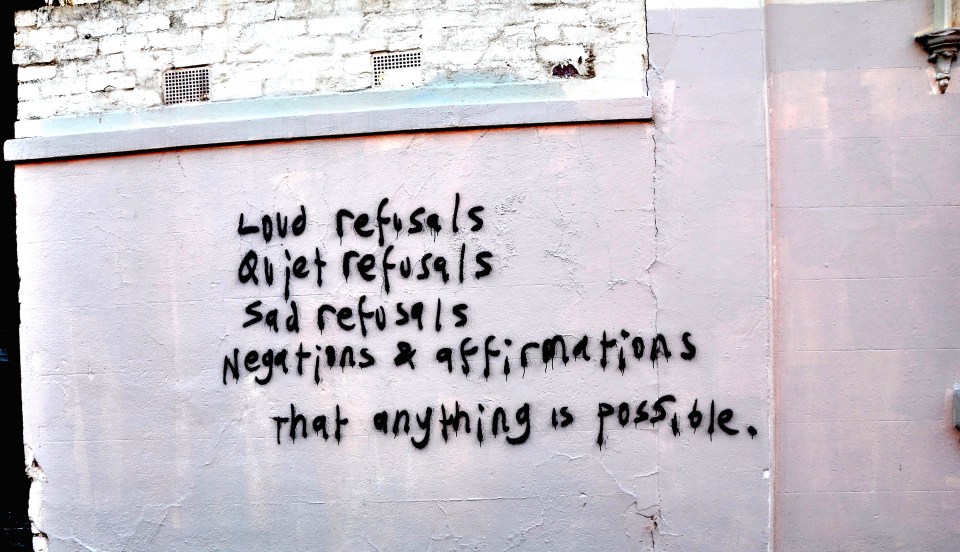 Loud refusals
Quiet refusals
Sad refusals
Negations & affirmations
that anything is possible.